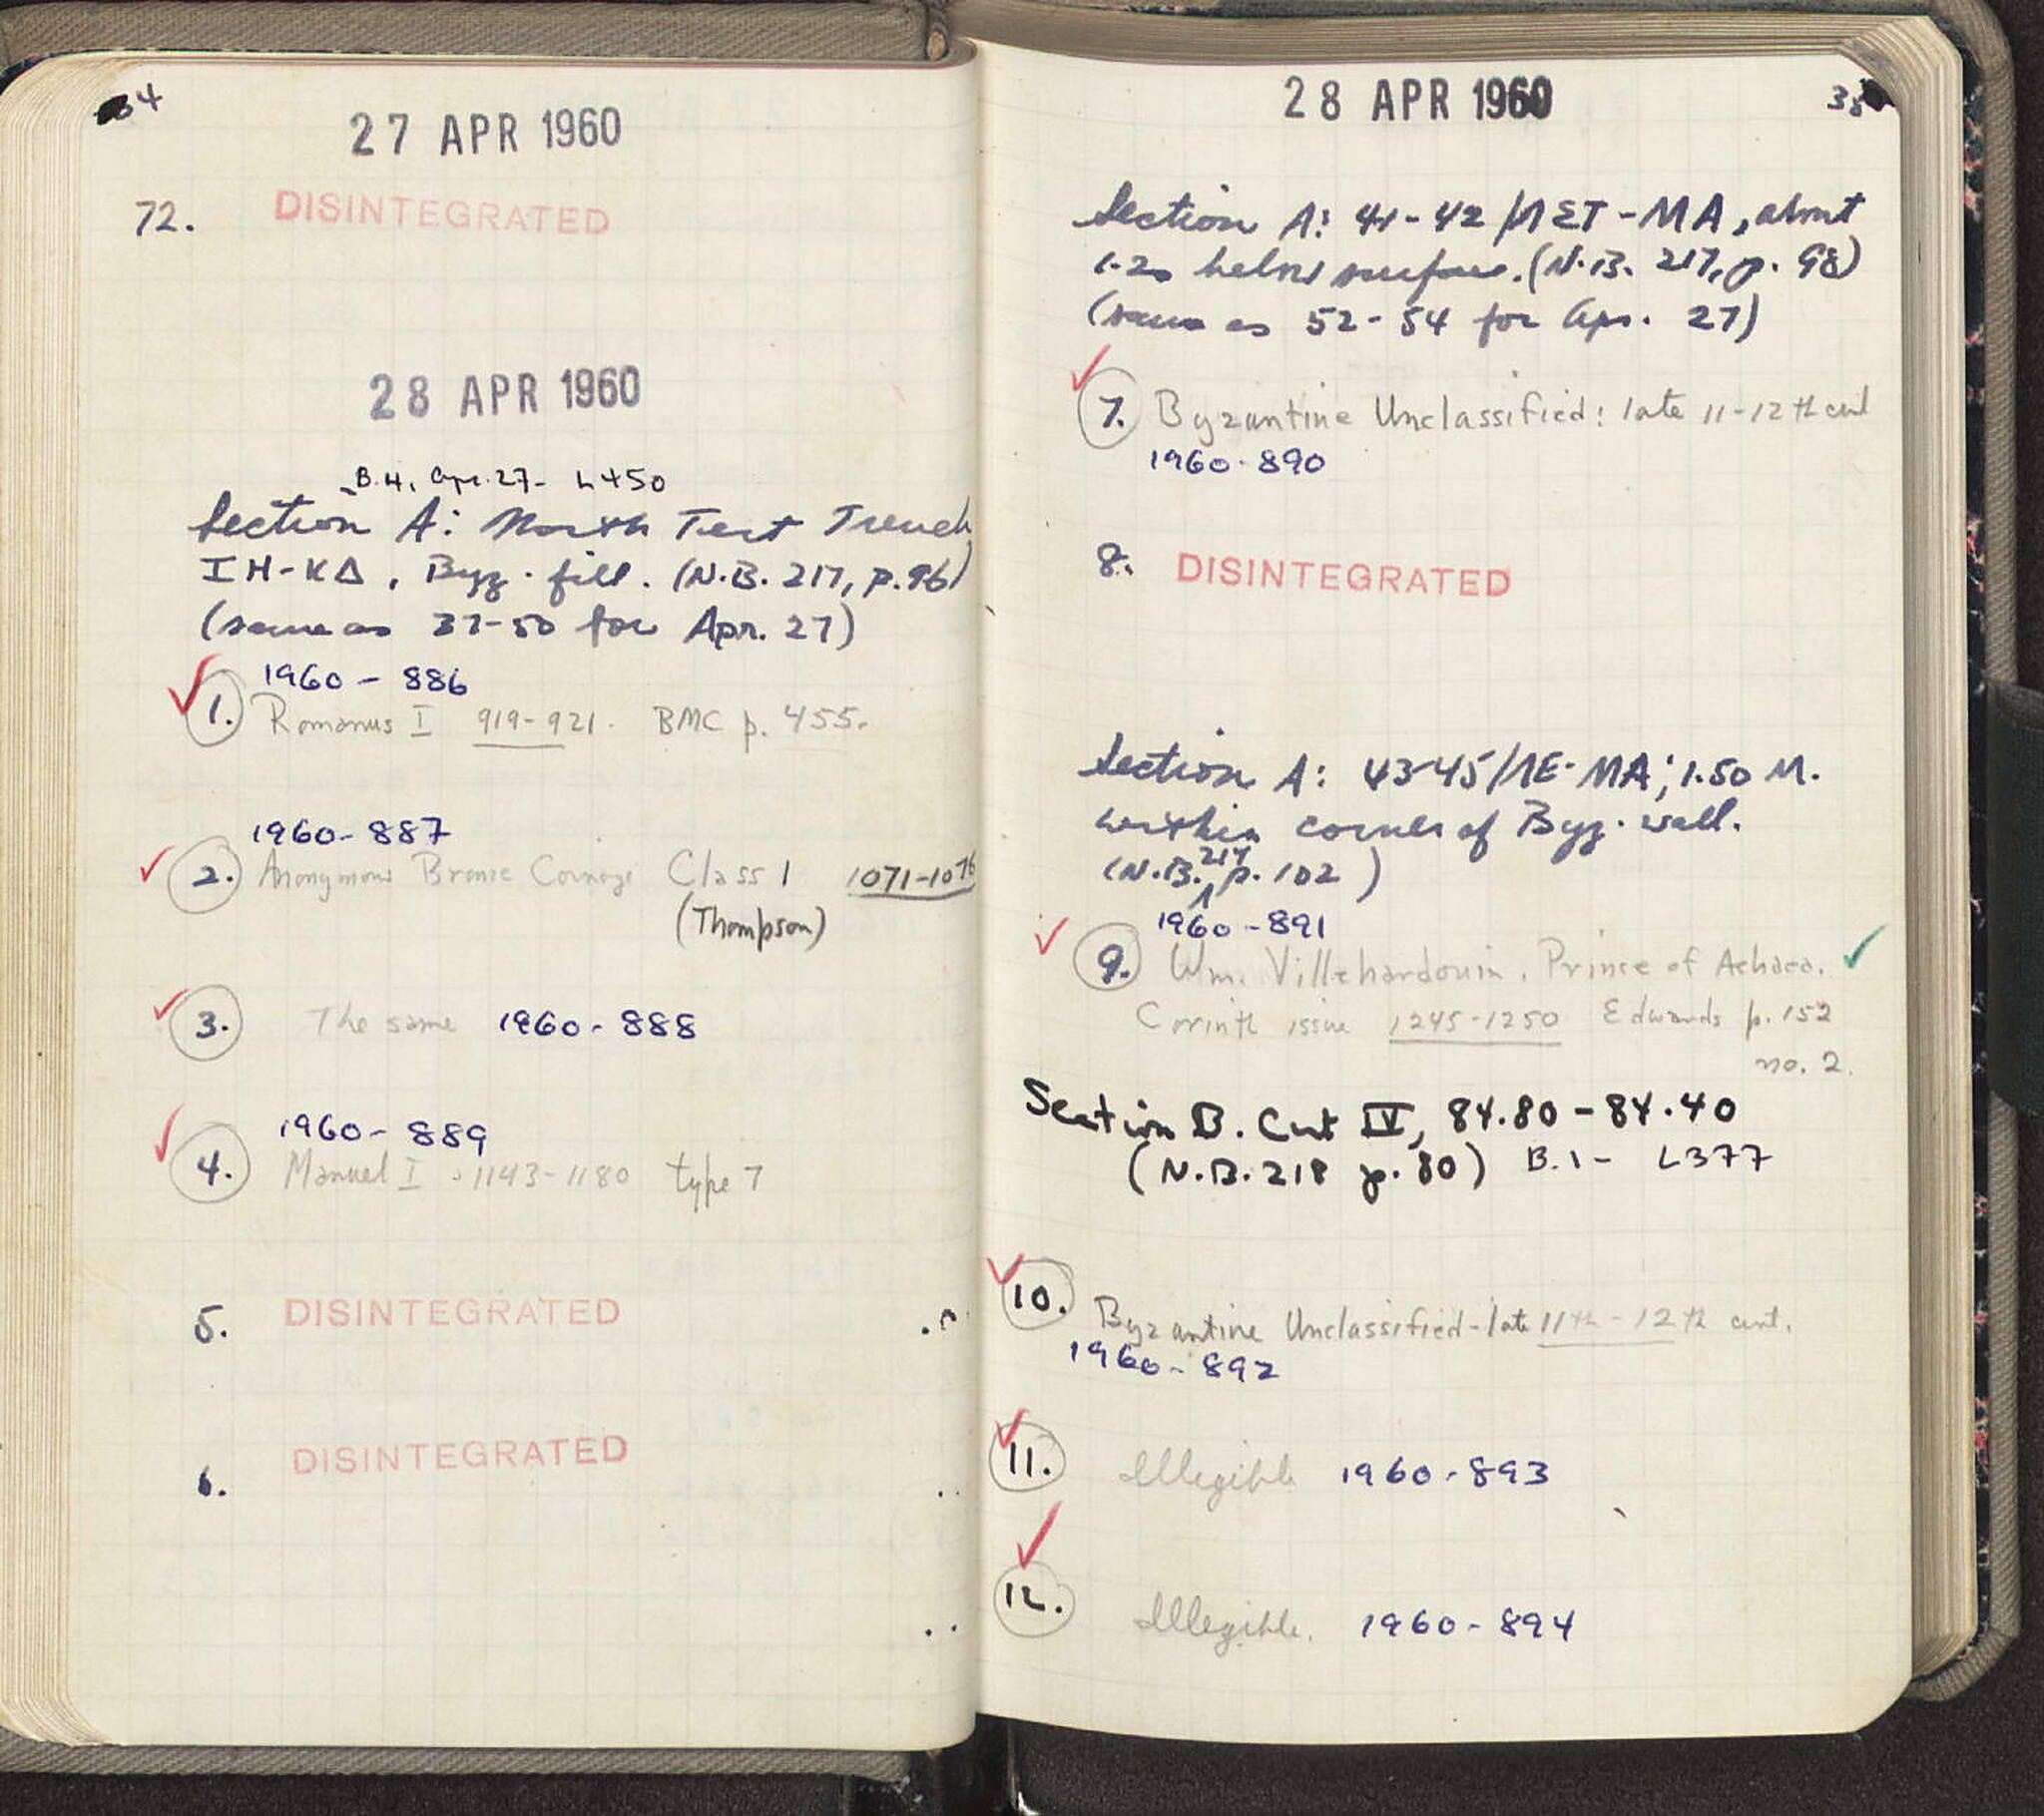 34
27 APR 1960
72. DISINTEGRATED
28 APR 1960
B.4, Apr. 27 - L450
Section A: North Test Trench
ΙΗ-ΚΔ, Byz. fill. (N.B. 217, p. 96)
(same as 37-50 for Apr. 27)
1960 - 886
1. Romanus I 919-921. BMC p. 455.
1960-887
2. Anonymous Bronze Coinage Class 1 1071-1076
(Thompson)
3. The same 1960-888
1960-889
4. Manuel I 1143-1180 type 7
5. DISINTEGRATED
6. DISINTEGRATED
28 APR 1960
35
Section A: 41-42 / ΛΣΤ-ΜΑ, about
1.20 below surface. (N.B. 217, p. 98)
(same as 52-54 for Apr. 27)
7. Byzantine Unclassified: late 11-12th cent
1960-890
8. DISINTEGRATED
Section A: 43-45/ΛΕ-ΜΑ; 1.50 M.
within corner of Byz. wall.
(N.B. 217 p. 102)
1960-891
9. Wm. Villehardouin. Prince of Achaea.
Corinth issue 1245-1250 Edwards p. 152
no. 2.
Section B. Cut IV, 84.80-84.40
(N.B. 218 p. 80) B.1- L377
10. Byzantine Unclassified-late 11th-12th cent.
1960-892
11. Illegible 1960-893
12. Illegible. 1960-894